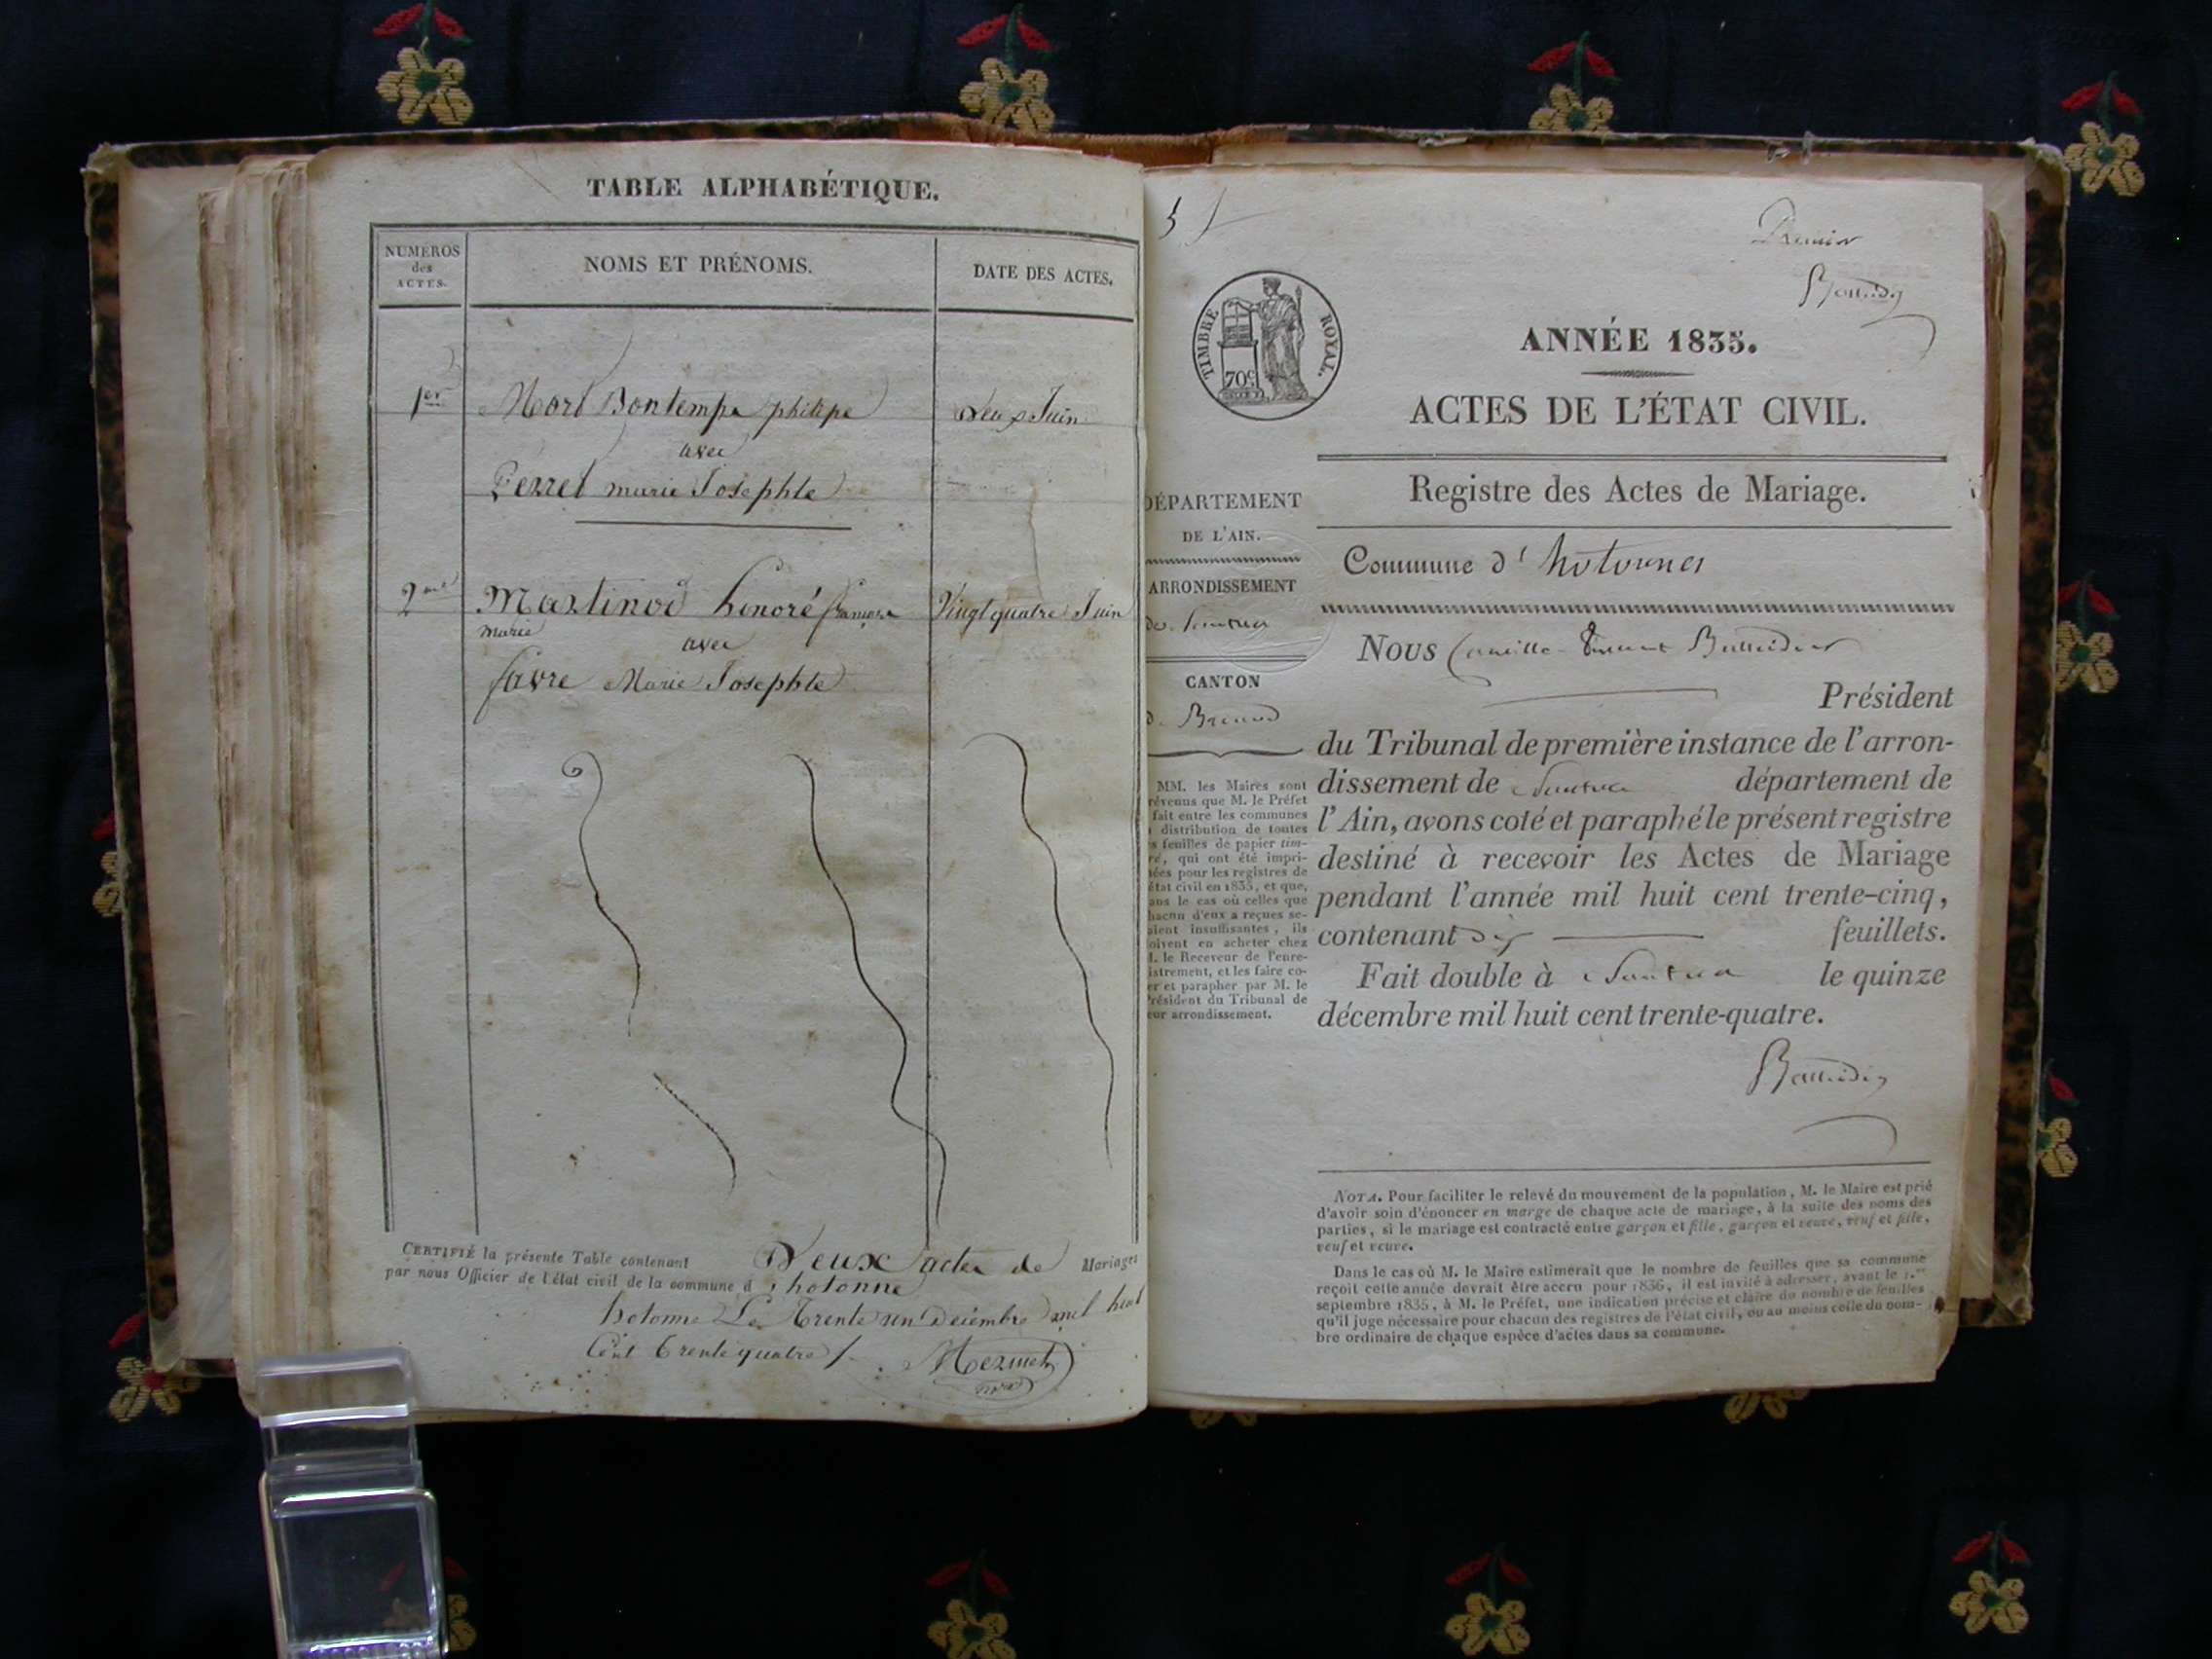 TABLE ALPHABÉTIQUE.
NUMÉROS
des
ACTES.
NOMS ET PRÉNOMS.
DATE DES ACTES.
1er Mort Bontemps philipe Deux Juin
avec
Perret marie Josephte
2me Martinod honoré françois Vingt quatre Juin
marie
avec
favre Marie Josephte
CERTIFIÉ la présente Table contenant Deux actes de Mariages
par nous Officier de l'état civil de la commune d'hotonne
hotonne Le Trente un Décembre mil huit
Cent Trente quatre /.
TIMBRE ROYAL.
70c
Premier
ANNÉE 1835.
ACTES DE L'ÉTAT CIVIL.
Registre des Actes de Mariage.
DÉPARTEMENT
DE L'AIN.
ARRONDISSEMENT
de Nantua
CANTON
d. Brenod
MM. les Maires sont
révenus que M. le Préfet
fait entre les communes
distribution de toutes
s feuilles de papier tim-
ré, qui ont été impri-
ées pour les registres de
état civil en 1835, et que,
ans le cas où celles que
hacun d'eux a reçues se-
aient insuffisantes, ils
oivent en acheter chez
I. le Receveur de l'enre-
istrement, et les faire co-
er et parapher par M. le
Président du Tribunal de
eur arrondissement.
Commune d'hotonnes
Nous Camille Vincent
Président
du Tribunal de première instance de l'arron-
dissement de Nantua département de
l'Ain, avons coté et paraphé le présent registre
destiné à recevoir les Actes de Mariage
pendant l'année mil huit cent trente-cinq,
contenant dix feuillets.
Fait double à Nantua le quinze
décembre mil huit cent trente-quatre.
NOTA. Pour faciliter le relevé du mouvement de la population, M. le Maire est prié
d'avoir soin d'énoncer en marge de chaque acte de mariage, à la suite des noms des
parties, si le mariage est contracté entre garçon et fille, garçon et veuve, veuf et fille,
veuf et veuve.
Dans le cas où M. le Maire estimerait que le nombre de feuilles que sa commune
reçoit cette année devrait être accru pour 1836, il est invité à adresser, avant le 1.er
septembre 1835, à M. le Préfet, une indication précise et claire du nombre de feuilles
qu'il juge nécessaire pour chacun des registres de l'état civil, ou au moins celle du nom-
bre ordinaire de chaque espèce d'actes dans sa commune.